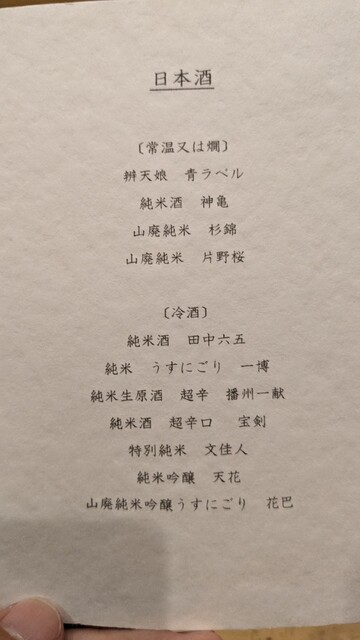 日本酒
〔常温又は燗〕
辨天娘　青ラベル
純米酒　神亀
山廃純米　杉錦
山廃純米　片野桜
〔冷酒〕
純米酒　田中六五
純米　うすにごり　一博
純米生原酒　超辛　播州一献
純米酒　超辛口　宝剣
特別純米　文佳人
純米吟醸　天花
山廃純米吟醸うすにごり　花巴